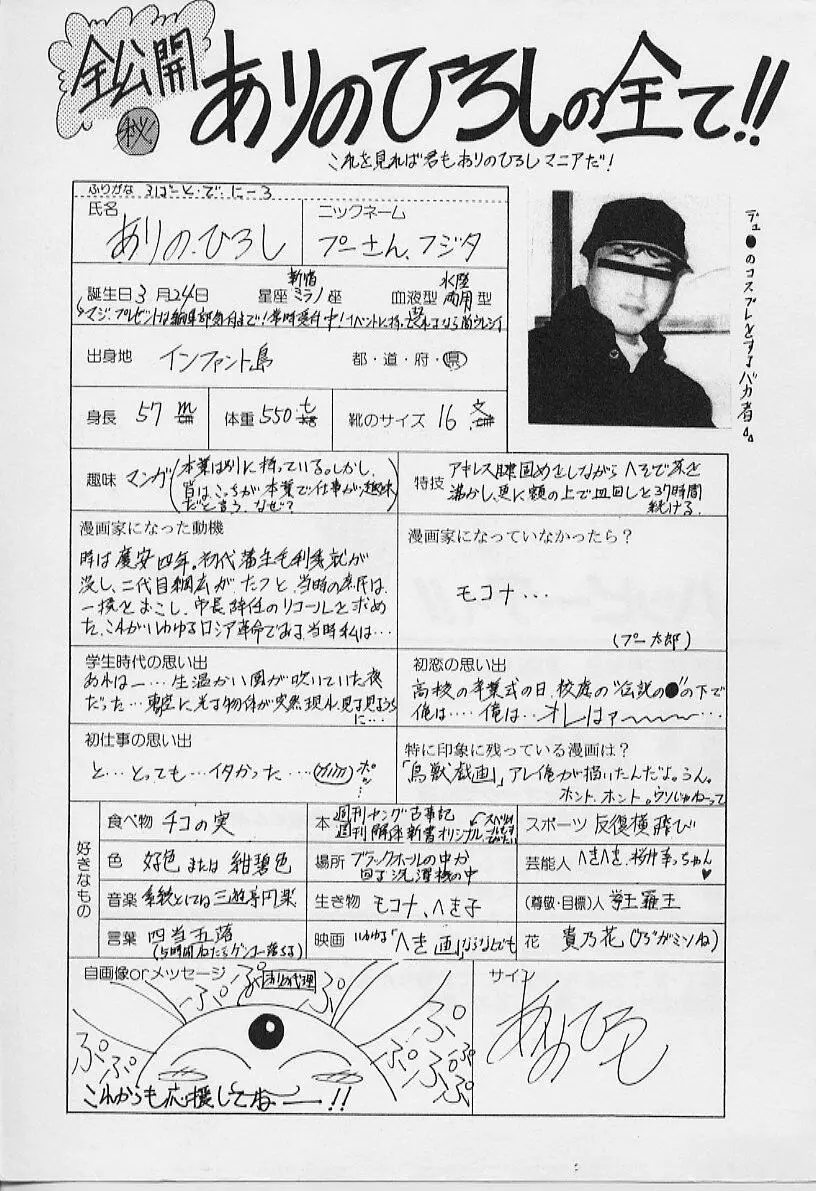 全公開
㊙
ありのひろしの全て!!
これを見れば君もありのひろしマニアだ!
ふりがな ろばーと・で・にーろ
氏名
ありの・ひろし
ニックネーム
プーさん、フジタ
誕生日 3月24日
星座 新宿ミラノ座
血液型 水陸両用型
マジ・プレゼントは編集部気付まで!常時受付中!
出身地 インファント島 都・道・府・県
身長 57 m
体重 550 t
靴のサイズ 16 文
デュ●のコスプレをするバカ者
趣味 マンガ(本業は別に持っている。しかし、
皆はこっちが本業で仕事が趣味
だと言う、なぜ?
特技 アキレス腱固めをしながらへそで茶を
沸かし、更に額の上で皿回しを37時間
続ける。
漫画家になった動機
時は慶安四年。初代藩主毛利秀就が
没し、二代目綱広がたつと、当時の庶民は
一揆をおこし、市長辞任のリコールを求め
た。これがいわゆるロシア革命である。当時私は…
漫画家になっていなかったら?
モコナ…
(プー太郎)
学生時代の思い出
あれは―…生温かい風が吹いていた夜
だった…東空に光る物体が突然現れ、見る見るうち
に…
初恋の思い出
高校の卒業式の日、校庭の“伝説の●”の下で
俺は…俺は…オレはァ〜〜〜…
初仕事の思い出
と…とっても…イタかった…ポッ…
特に印象に残っている漫画は?
「鳥獣戯画」アレ俺が描いたんだよ。うん。
ホント、ホント。ウソじゃねーって
好きなもの
食べ物 チコの実
本 週刊ヤング古事記
週刊解体新書オリジナル
スポーツ 反復横飛び
色 好色または紺碧色
場所 ブラックホールの中か
回る洗濯機の中
芸能人 へきへき、桜井幸っちゃん♥
音楽 系統としては三遊亭円楽
生き物 モコナ、へき子
(尊敬・目標)人 拳王羅王
言葉 四当五落
(5時間ねたらゲンコー落ちる)
映画 いわゆる「へき画」ならなんでも
花 貴乃花(ヅラがミソね)
自画像orメッセージ
ありの代理
ぷぷぷぷ
ぷぷ
ぷぷ
ぷぷ
ぷ
ぷぷ
ぷぷ
これからも応援してね――!!
サイン
ありのひろし